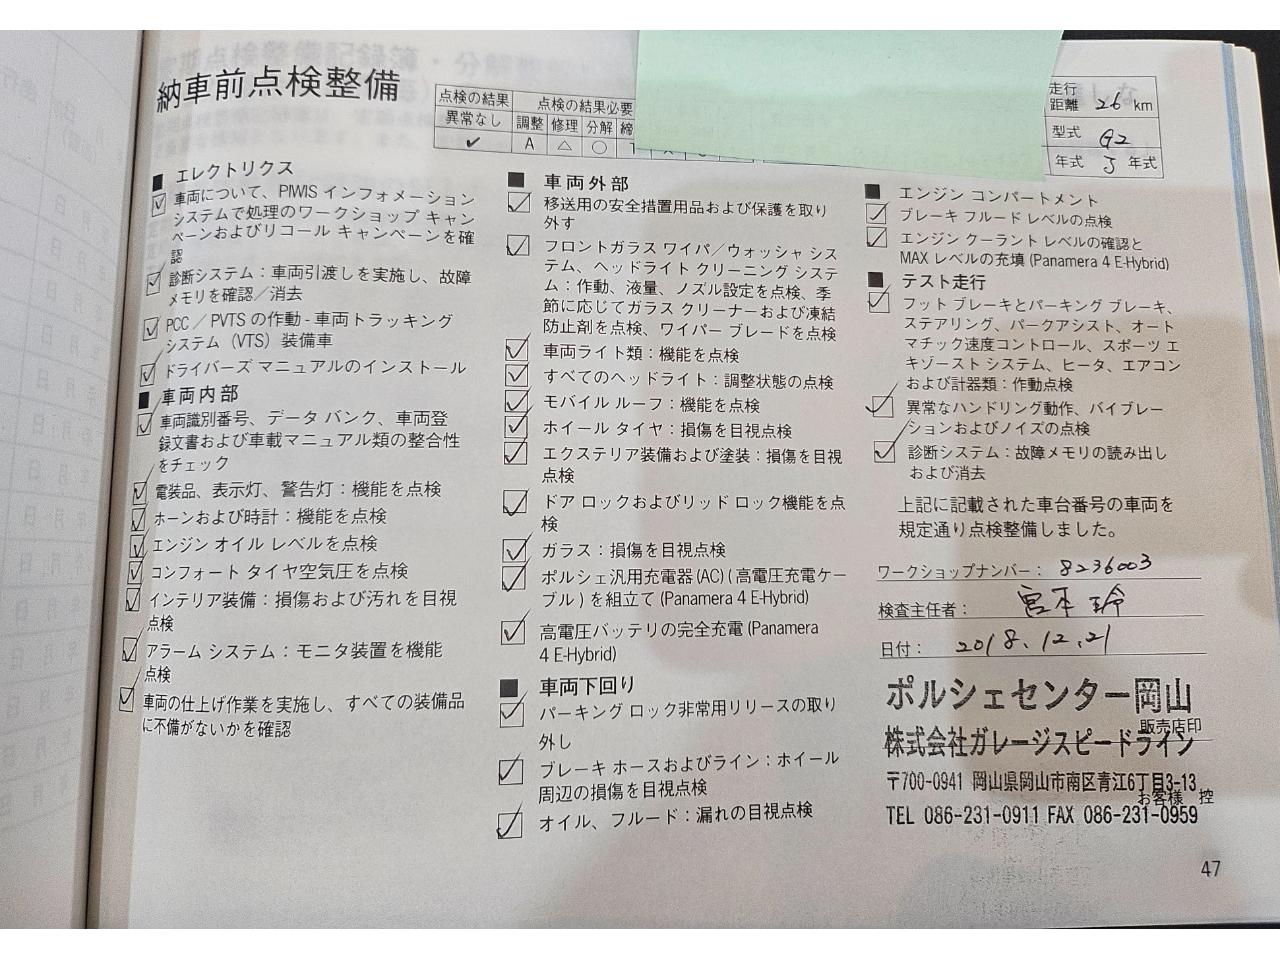 納車前点検整備
点検の結果
異常なし
点検の結果必要
調整 修理 分解 締
A △ ○
走行距離 26 km
型式 G2
年式 J 年式
■ エレクトリクス
車両について、PIWIS インフォメーション
システムで処理のワークショップ キャン
ペーンおよびリコール キャンペーンを確
認
診断システム：車両引渡しを実施し、故障
メモリを確認／消去
PCC／PVTS の作動 - 車両トラッキング
システム（VTS）装備車
ドライバーズ マニュアルのインストール
■ 車両内部
車両識別番号、データ バンク、車両登
録文書および車載マニュアル類の整合性
をチェック
電装品、表示灯、警告灯：機能を点検
ホーンおよび時計：機能を点検
エンジン オイル レベルを点検
コンフォート タイヤ空気圧を点検
インテリア装備：損傷および汚れを目視
点検
アラーム システム：モニタ装置を機能
点検
車両の仕上げ作業を実施し、すべての装備品
に不備がないかを確認
■ 車両外部
移送用の安全措置用品および保護を取り
外す
フロントガラス ワイパ／ウォッシャ シス
テム、ヘッドライト クリーニング システ
ム：作動、液量、ノズル設定を点検、季
節に応じてガラス クリーナーおよび凍結
防止剤を点検、ワイパー ブレードを点検
車両ライト類：機能を点検
すべてのヘッドライト：調整状態の点検
モバイル ルーフ：機能を点検
ホイール タイヤ：損傷を目視点検
エクステリア装備および塗装：損傷を目視
点検
ドア ロックおよびリッド ロック機能を点
検
ガラス：損傷を目視点検
ポルシェ汎用充電器 (AC) ( 高電圧充電ケー
ブル ) を組立て (Panamera 4 E-Hybrid)
高電圧バッテリの完全充電 (Panamera
4 E-Hybrid)
■ 車両下回り
パーキング ロック非常用リリースの取り
外し
ブレーキ ホースおよびライン：ホイール
周辺の損傷を目視点検
オイル、フルード：漏れの目視点検
■ エンジン コンパートメント
ブレーキ フルード レベルの点検
エンジン クーラント レベルの確認と
MAX レベルの充填 (Panamera 4 E-Hybrid)
■ テスト走行
フット ブレーキとパーキング ブレーキ、
ステアリング、パークアシスト、オート
マチック速度コントロール、スポーツ エ
キゾースト システム、ヒータ、エアコン
および計器類：作動点検
異常なハンドリング動作、バイブレー
ションおよびノイズの点検
診断システム：故障メモリの読み出し
および消去
上記に記載された車台番号の車両を
規定通り点検整備しました。
ワークショップナンバー： 8236003
検査主任者： 宮本 玲
日付： 2018.12.21
ポルシェセンター岡山
販売店印
株式会社ガレージスピードライン
〒700-0941 岡山県岡山市南区青江6丁目3-13
お客様 控
TEL 086-231-0911 FAX 086-231-0959
47